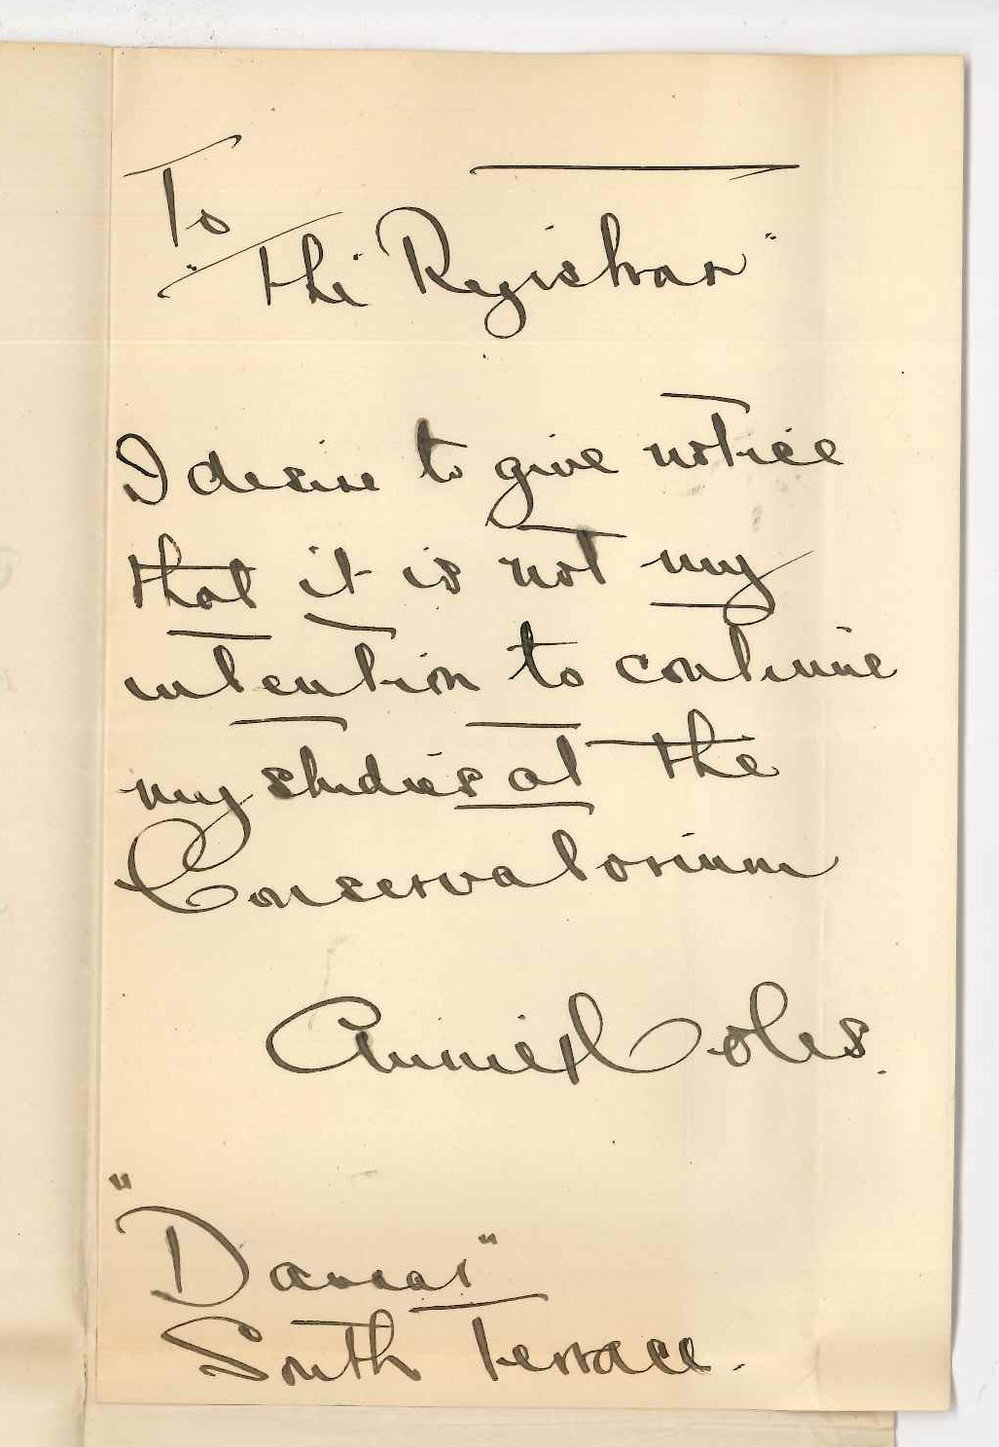 To
"The Registrar"
I desire to give notice
that it is not my
intention to continue
my studies at the
Conservatorium
Annie Coles.
South Terrace.